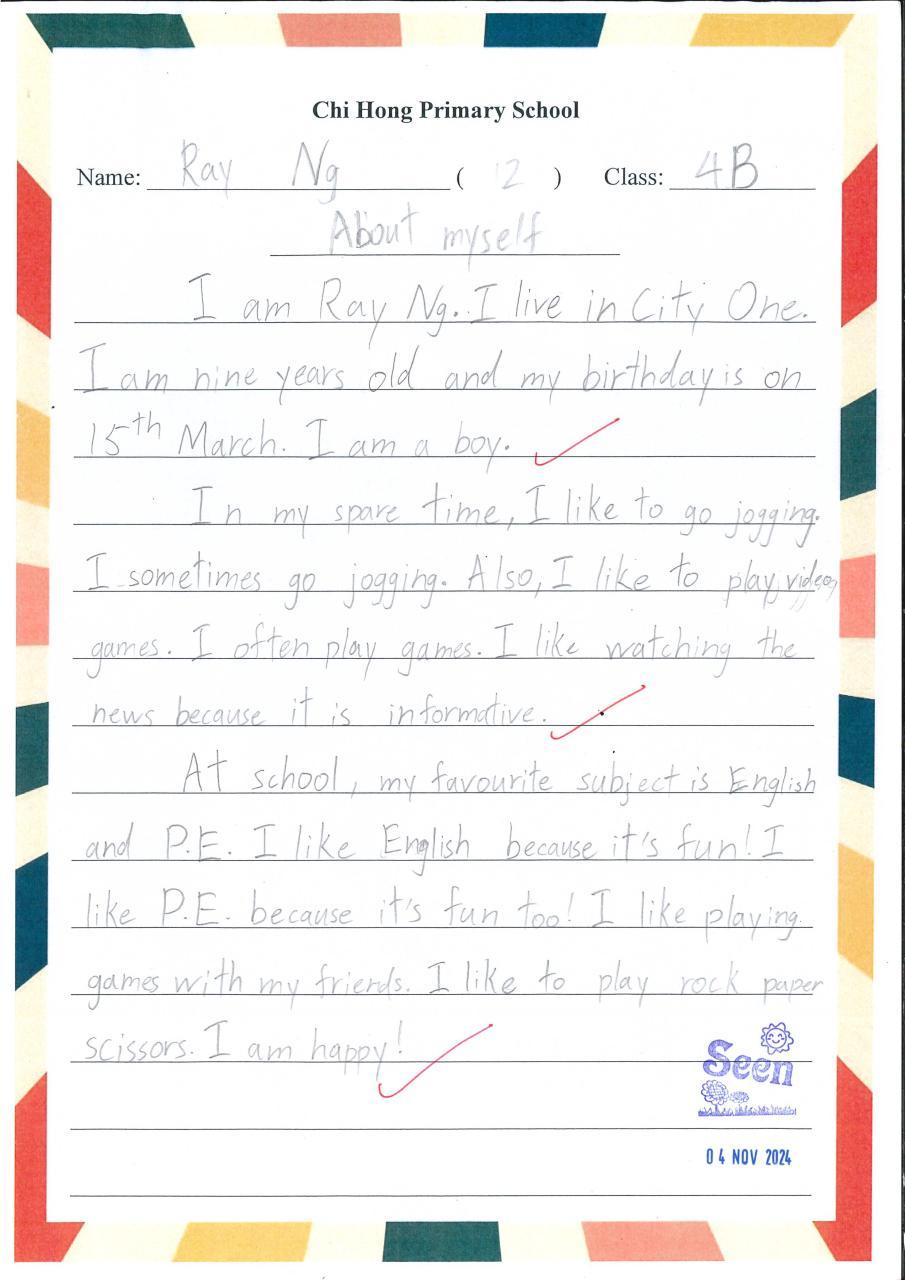 Chi Hong Primary School
Name: Ray Ng ( 12 ) Class: 4B
About myself
I am Ray Ng. I live in City One.
I am nine years old and my birthday is on
15th March. I am a boy.
In my spare time, I like to go jogging.
I sometimes go jogging. Also, I like to play video
games. I often play games. I like watching the
news because it is informative.
At school, my favourite subject is English
and P.E. I like English because it's fun! I
like P.E. because it's fun too! I like playing
games with my friends. I like to play rock paper
scissors. I am happy!
Seen
04 NOV 2024